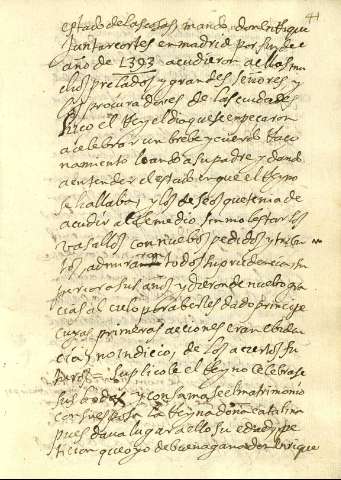 41
estado de las cosas mando don enrrique
juntar cortes en madrid por fin de el
año de 1393 acudieron a ellas mu
chos prelados y grandes señores y
los procuradores de las ciudades
hiço el Rey el dia que se empeçaron
a celebrar un brebe y cuerdo raço
namiento loando a su padre y dando
a entender el estado en que el Reyno
se hallaba y los deseos que tenia de
acudir al Remedio sin molestar los
vasallos con nuebos pedidos y tribu
tos admiraron todos su prudencia su
perior a sus años y dieron de nuebo gra
cias al cielo por aberles dado principe
cuyas primeras acciones eran ebiden
cia y no indicios de los aciertos fu
turos = suplicole el Reyno celebrase
sus bodas y consumase el matrimonio
con su esposa la Reyna doña catalina
pues dava lugar a ello su edad y pe
ticion que oyo de buena gana don enrique